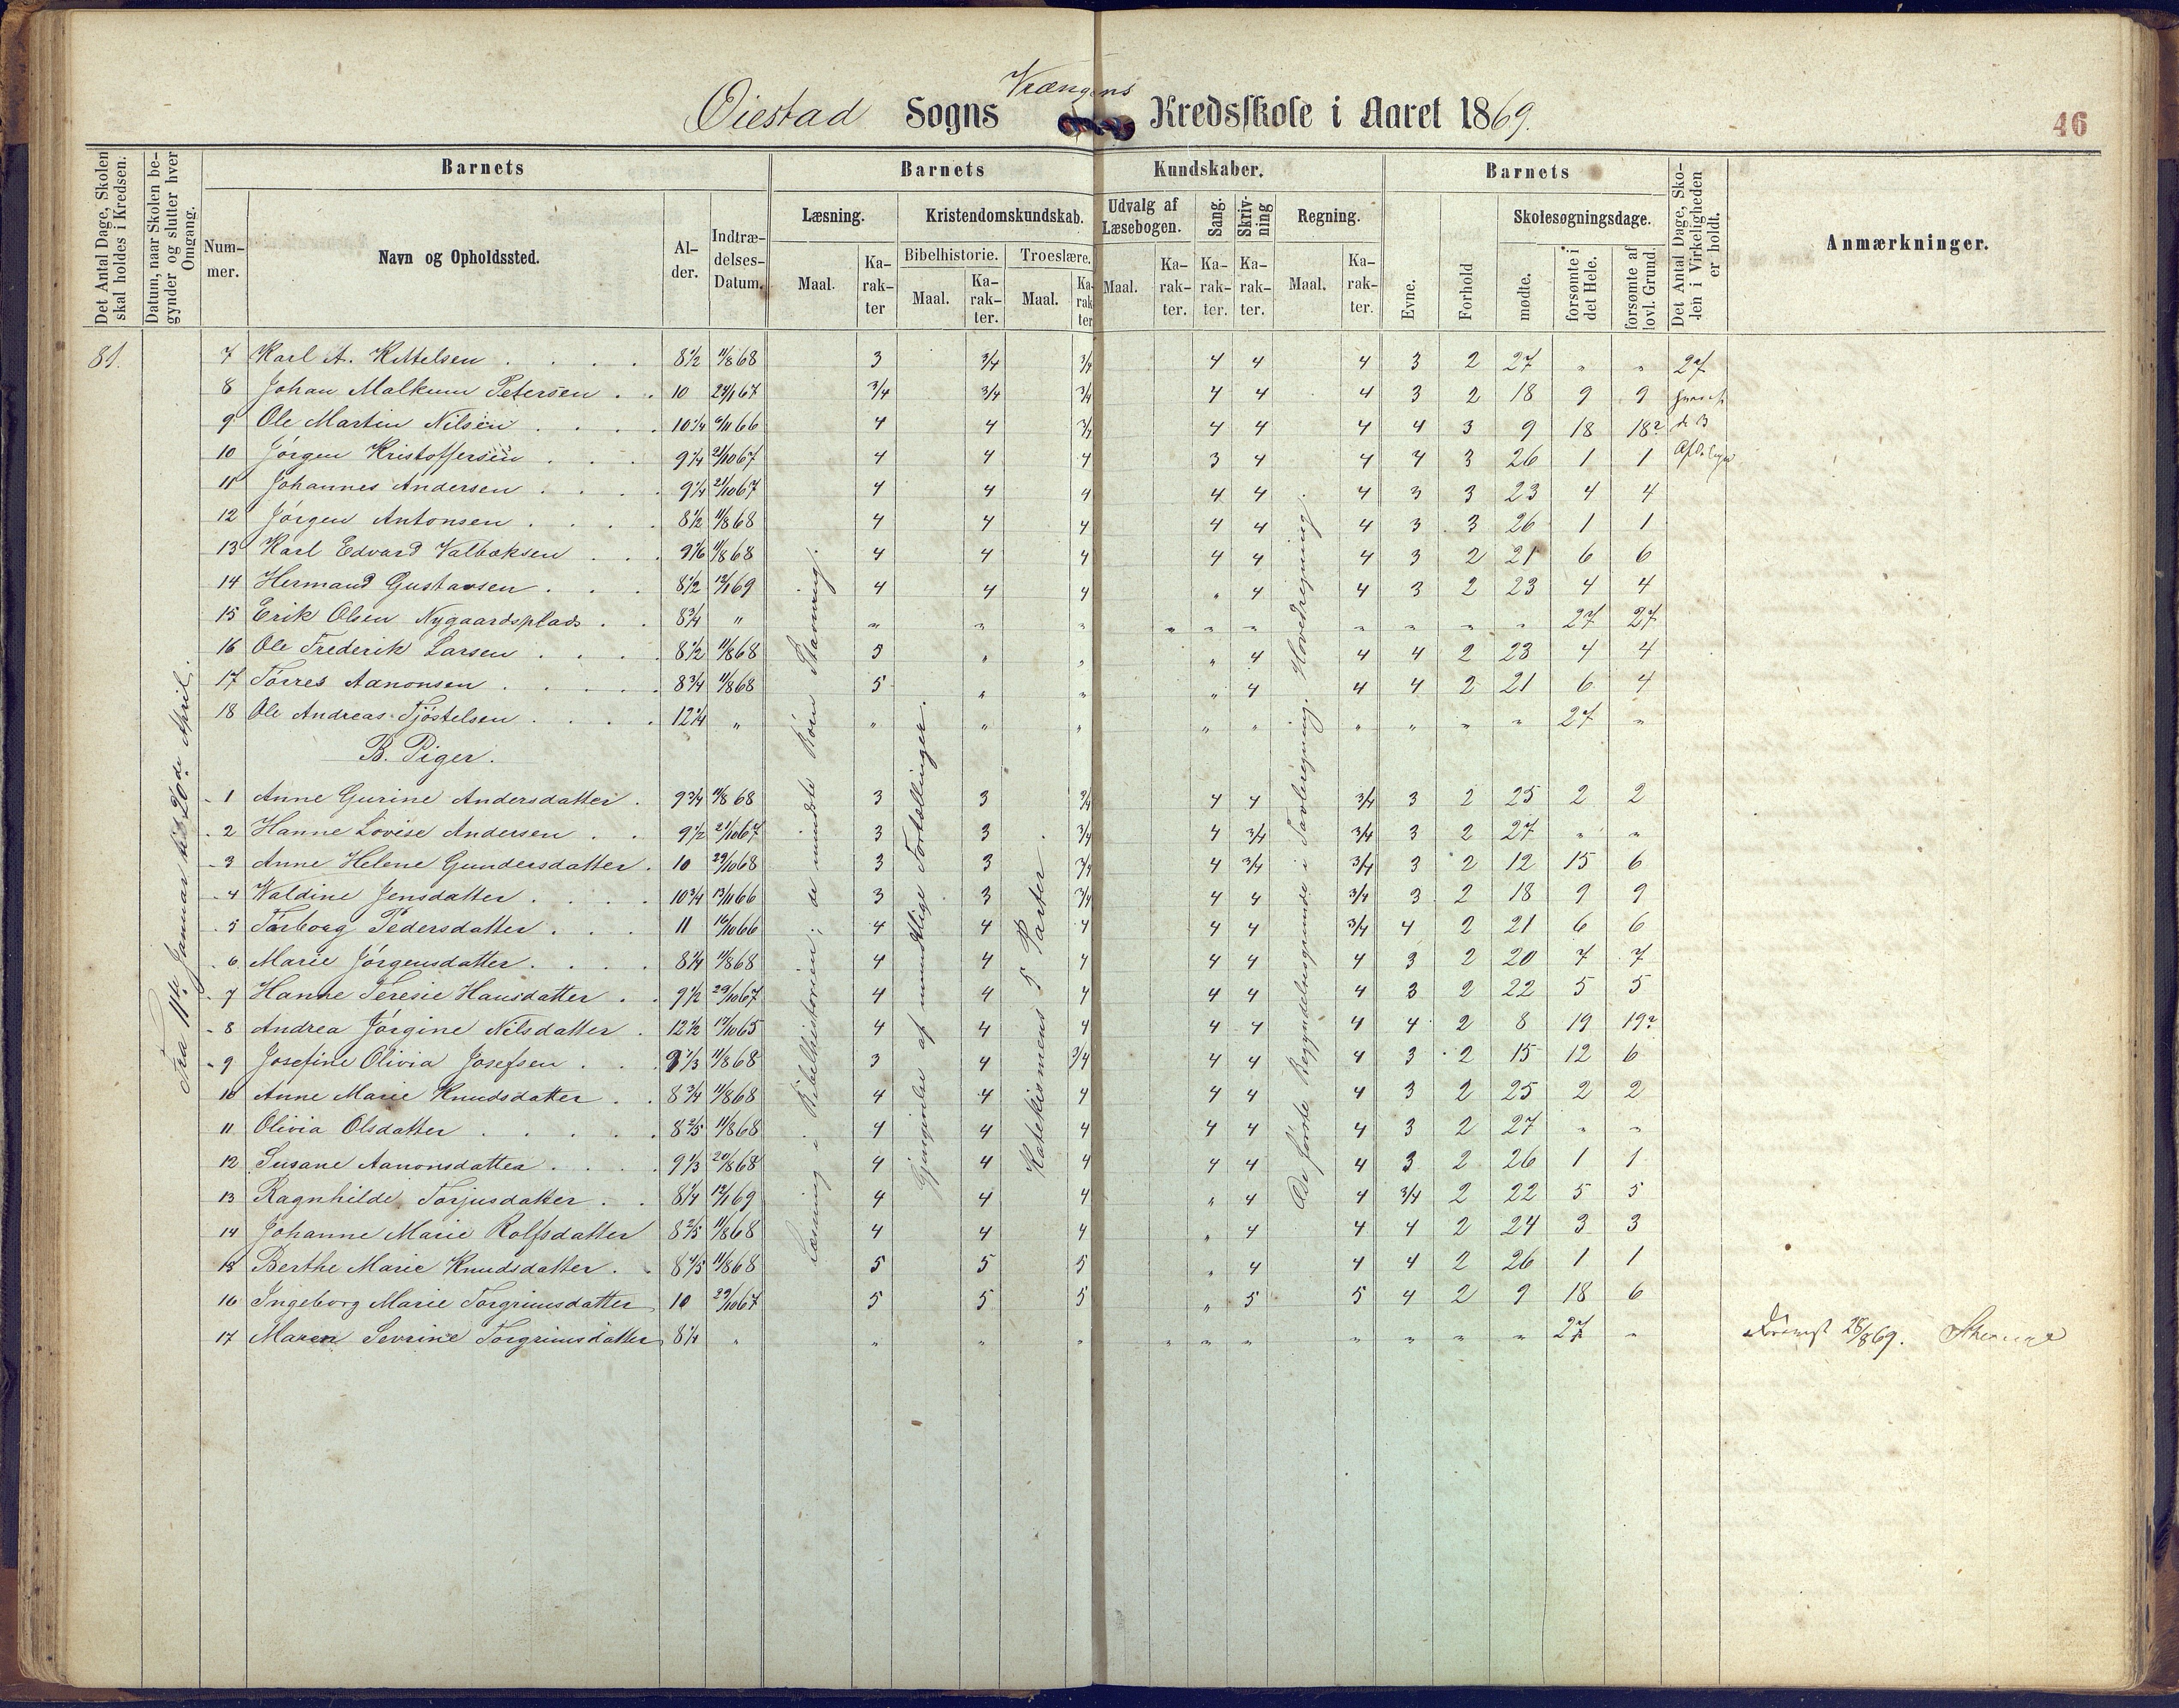 Vrængens
Øiestad Sogns Kredsskole i Aaret 1869.
46
Det Antal Dage, Skolen skal holdes i Kredsen.
Datum, naar Skolen begynder og slutter hver Omgang.
Barnets
Barnets
Kundskaber.
Barnets
Det Antal Dage, Skolen i Virkeligheden er holdt.
Anmærkninger.
Nummer.
Navn og Opholdssted.
Alder.
Indtrædelses-Datum.
Læsning.
Kristendomskundskab.
Udvalg af Læsebogen.
Sang.
Skrivning
Regning.
Evne.
Forhold
Skolesøgningsdage.
Bibelhistorie. Troeslære.
Maal. Karakter Maal. Karakter. Maal. Karakter Maal. Karakter. Karakter. Karakter. Maal. Karakter.
mødte. forsømte i det Hele. forsømte af lovl. Grund.
81.
Fra 11te Januar til 20de April.
7 Karl A. Kittelsen 8½ 11/8 68 3 3/4 3/4 4 4 4 3 2 27 " " 27
8 Johan Malkum Petersen 10 24/1 67 3/4 3/4 3/4 4 4 4 3 2 18 9 9
9 Ole Martin Nilsen 10¼ 6/11 66 4 4 3/4 4 4 4 4 3 9 18 18?
10 Jørgen Kristoffersen 9¼ 21/10 67 4 4 4 3 4 4 4 3 26 1 1
11 Johannes Andersen 9¼ 21/10 67 4 4 4 4 4 4 3 3 23 4 4
12 Jørgen Antonsen 8½ 11/8 68 4 4 4 4 4 4 3 3 26 1 1
13 Karl Edvard Valbøksen 9 1/6 11/8 68 4 4 4 4 4 4 3 2 21 6 6
14 Hermand Gustavsen 8½ 12/1 69 4 4 4 " 4 4 3 2 23 4 4
15 Erik Olsen Nygaardsplads 8¾ " " " " " " " " " " " 27 27
16 Ole Frederik Larsen 8½ 11/8 68 5 " " " 4 4 4 2 23 4 4
17 Tørres Aanonsen 8¾ 11/8 68 5 " " " 4 4 4 2 21 6 4
18 Ole Andreas Tjøstelsen 12¼ " " " " " " " " " " 27 "
B. Piger.
1 Anne Gurine Andersdatter 9¾ 11/8 68 3 3 3/4 4 4 3/4 3 2 25 2 2
2 Hanne Lovise Andersen 9½ 21/10 67 3 3 3/4 4 3/4 3/4 3 2 27 " "
3 Anne Helene Gundersdatter 10 29/10 68 3 3 3/4 4 3/4 3/4 3 2 12 15 6
4 Valdine Jensdatter 10¾ 13/11 66 3 3 3/4 4 4 3/4 3 2 18 9 9
5 Torborg Pedersdatter 11 16/10 66 4 4 4 4 4 3/4 4 2 21 6 6
6 Marie Jørgensdatter 8¼ 11/8 68 4 4 4 4 4 4 3 2 20 7 7
7 Hanne Teresie Hansdatter 9½ 29/10 67 4 4 4 4 4 4 3 2 22 5 5
8 Andrea Jørgine Nilsdatter 12½ 17/10 65 4 4 4 4 4 4 4 2 8 19 19?
9 Josefine Olivia Josefsen 9⅓ 11/8 68 3 4 3/4 4 4 4 3 2 15 12 6
10 Anne Marie Knudsdatter 8¾ 11/8 68 4 4 4 4 4 4 3 2 25 2 2
11 Olivia Olsdatter 8 2/5 11/8 68 4 4 4 4 4 4 3 2 27 " "
12 Susane Aanonsdatter 9⅓ 20/8 68 4 4 4 4 4 4 3 2 26 1 1
13 Ragnhilde Torjusdatter 8¼ 12/1 69 4 4 4 " 4 4 3/4 2 22 5 5
14 Johanne Marie Rolfsdatter 8 2/5 11/8 68 4 4 4 " 4 4 4 2 24 3 3
15 Berthe Marie Knudsdatter 8 4/5 11/8 68 5 5 5 " 4 4 4 2 26 1 1
16 Ingeborg Marie Torgrimsdatter 10 29/10 67 5 5 5 " 5 5 4 2 9 18 6
17 Maren Sevrine Torgrimsdatter 8¼ " " " " " " " " " " " 27 "
28/8 69.
Læsning i Bibelhistorien; de mindste Børn Stavning.
Gjengivelse af mundtlige Fortællinger.
Katekismens 5 Parter.
De første Begyndelsesgrunde i Tavleregning. Hovedregning.